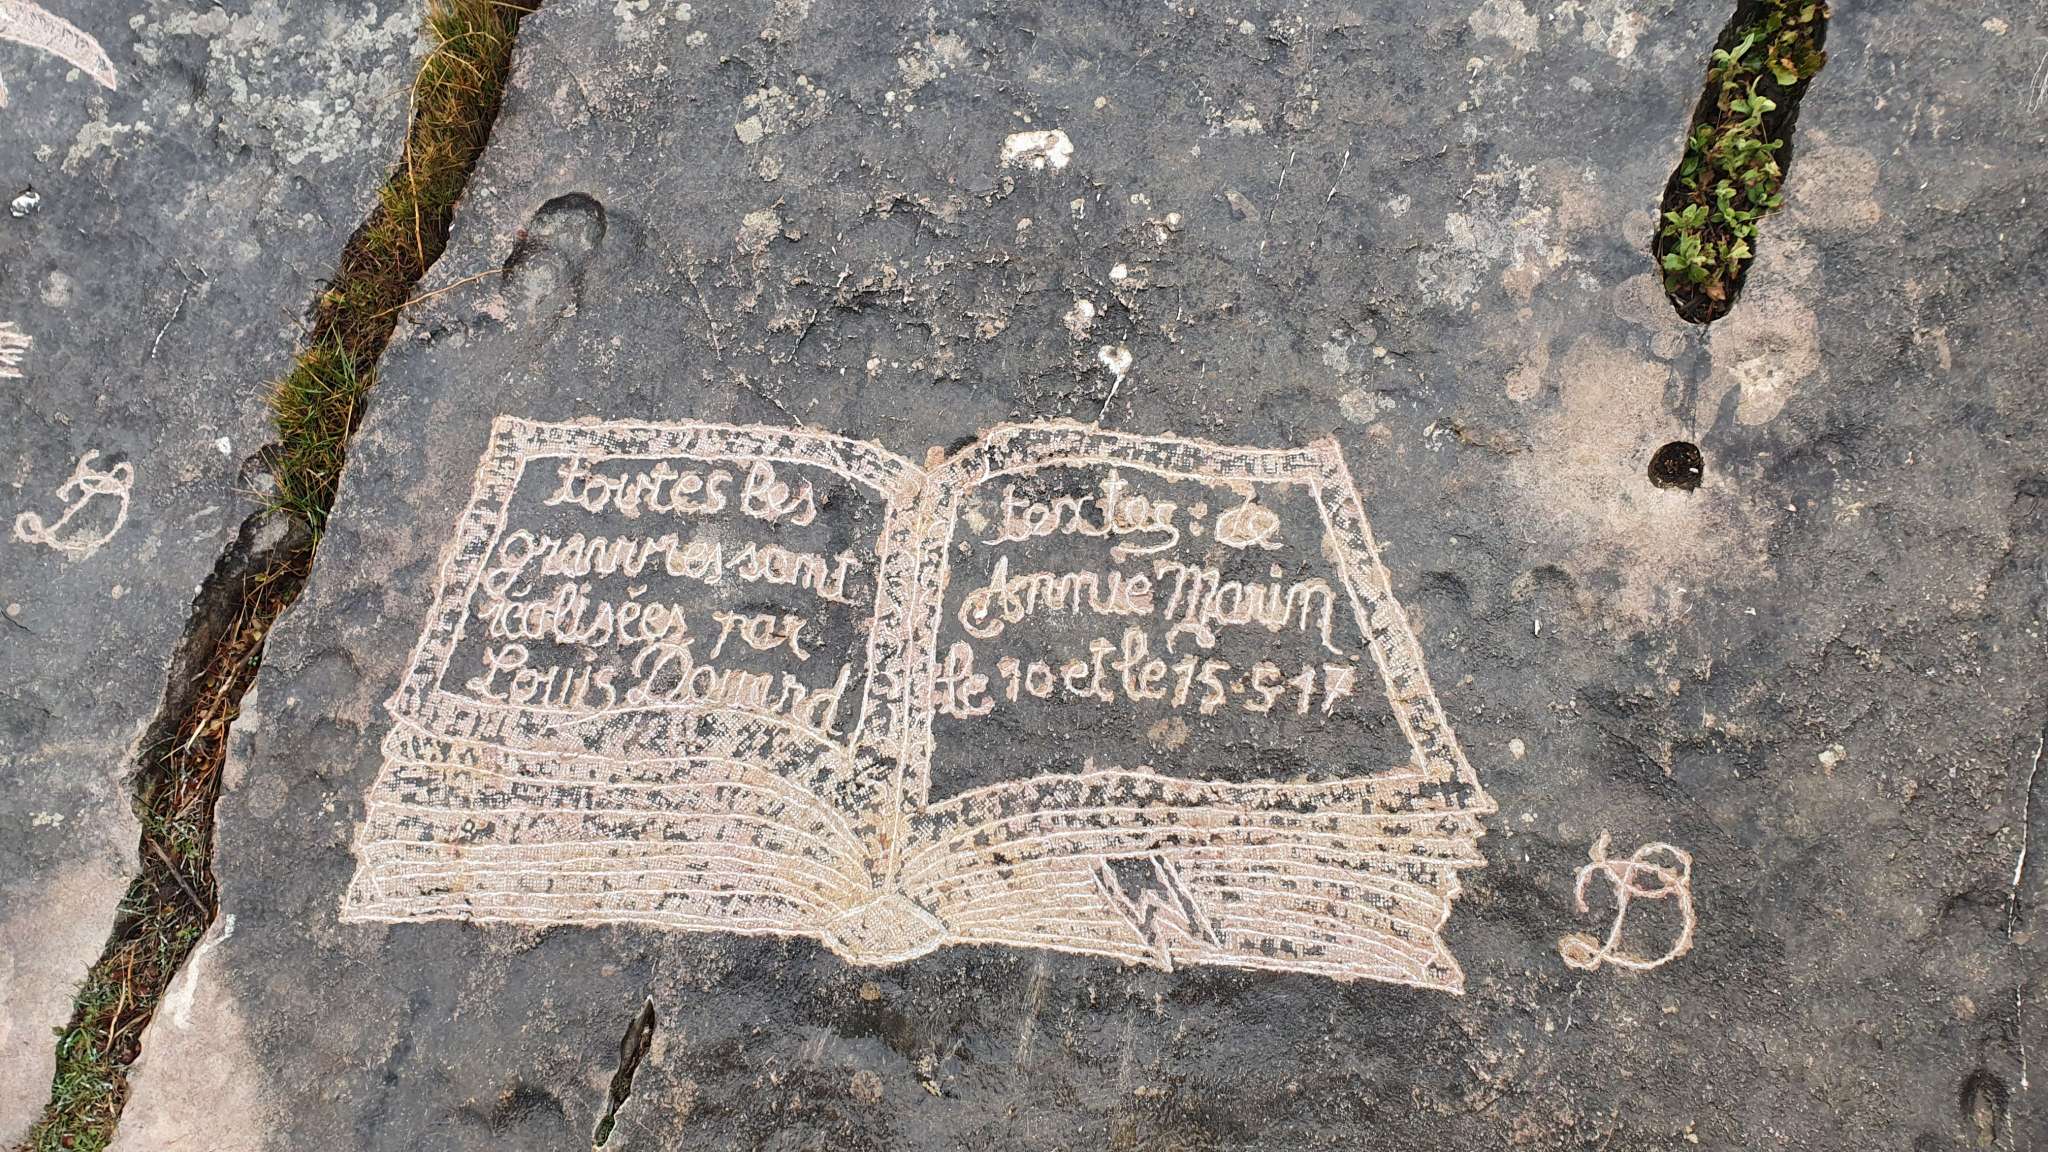 toutes les
gravures sont
réalisées par
Louis Douard
textes : de
Annie Marin
le 10 et le 15.5.17
D
D